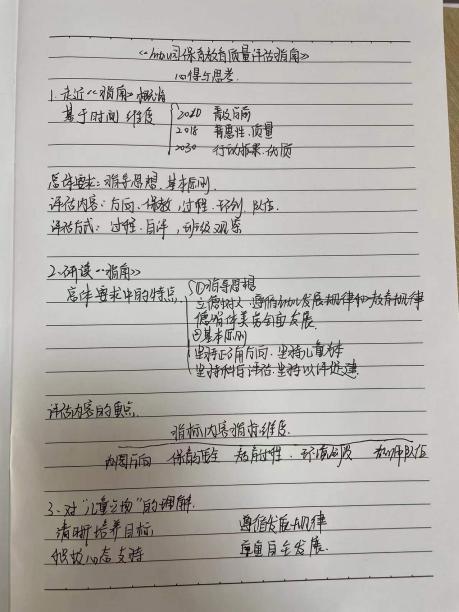 《幼儿园保育教育质量评估指南》
心得与思考
1.走近《指南》概括
基于时间维度
2010 普及方面
2018 普惠性、质量
2030 行动
总体要求:指导思想、基本原则
评估内容:方向、保教、过程、环创、队伍
评估方式:过程、自评、班级观察
2.研读《指南》
总体要求中的特点
①指导思想
立德树人、遵循幼儿发展规律和教育规律
德智体美劳全面发展
②基本原则
坚持正确方向、坚持儿童为本
坚持科学评估、坚持以评促建
评估内容的重点
指标内容指标维度
办园方向 保育与安全 教育过程、环境创设 教师队伍
3、对“儿童立场”的理解
清晰培养目标, 遵循发展规律
积极心态支持 尊重自主发展.